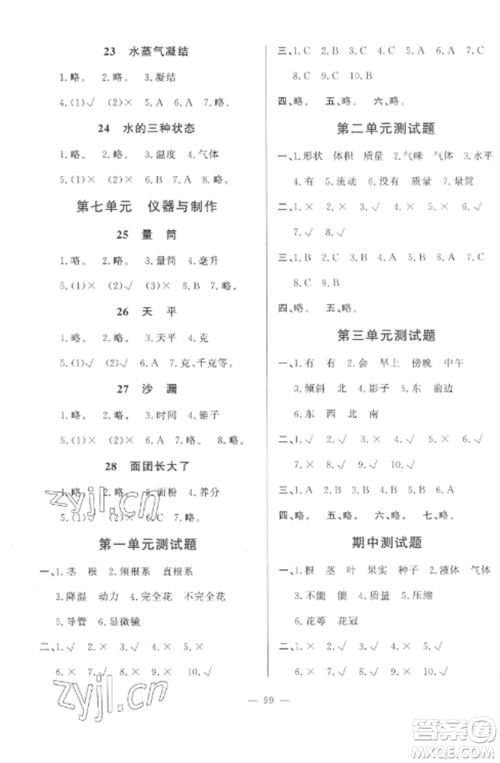 23 水蒸气凝结
1.略。 2.略。 3.凝结
4.(1)√ (2)× 5.A 6.A 7.略。
24 水的三种状态
1.略。 2.略。 3.温度 4.气体
5.(1)× (2)× 6.B 7.B 8.略。
第七单元 仪器与制作
25 量 筒
1.略。 2.略。 3.量筒 4.毫升
5.(1)√ (2)√ (3)× 6.B 7.略。
26 天 平
1.略。 2.略。 3.天平 4.克
5.(1)√ (2)√ 6.A 7.克、千克等。
27 沙 漏
1.略。 2.略。 3.时间 4.锥子
5.(1)× (2)× 6.A 7.B 8.略。
28 面团长大了
1.略。 2.略。 3.面粉 4.养分
5.(1)√ (2)√ 6.B 7.A 8.略。
第一单元测试题
一、1.茎 根 2.须根系 直根系
3.降温 动力 4.完全花 不完全花
5.导管 6.显微镜
二、1.√ 2.× 3.√ 4.× 5.×
6.× 7.√ 8.× 9.× 10.√
三、1.C 2.A 3.B 4.C 5.A 6.B
7.C 8.B
四、略。 五、略。 六、略。
第二单元测试题
一、1.形状 体积 质量 2.气味 气体 3.水平
4.质量 5.有 流动 6.没有 7.质量 8.量筒
二、1.× 2.√ 3.× 4.√ 5.√ 6.√
7.√ 8.√ 9.× 10.√
三、1.C 2.B 3.B 4.A 5.A 6.B 7.B
8.C 9.B 10.B
四、略。 五、略。
第三单元测试题
一、1.有 有 2.会 早上 傍晚 中午
3.倾斜 北 4.影子 5.东 前边
6.东 西 北 南
二、1.√ 2.√ 3.√ 4.× 5.√ 6.√
7.√ 8.√ 9.× 10.×
三、1.A 2.B 3.B 4.A 5.A 6.C 7.B 8.A
四、略。 五、略。 六、略。 七、略。
期中测试题
一、1.根 茎 叶 果实 种子 2.液体 气体
3.不能 4.质量 5.压缩
6.花萼 花冠
二、1.√ 2.√ 3.× 4.× 5.√
6.× 7.× 8.√ 9.√ 10.√
— 99 —
zyjl.cn
zyjl.cn
答案圈
MXQE.COM